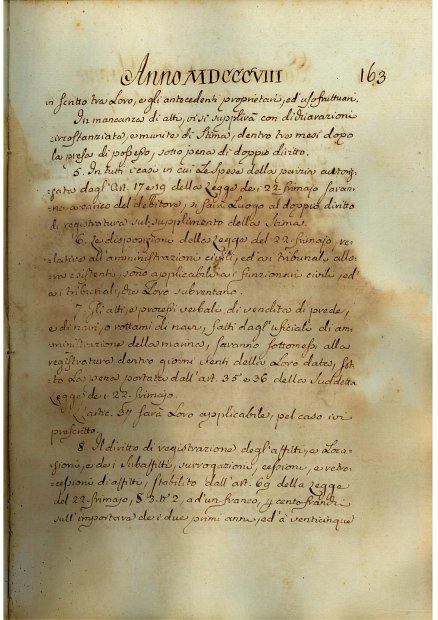 Anno MDCCCVIII 163
in scritto tra Loro, e gli antecedenti proprietarj, ed usufruttuarj.
In mancanza di atti, vi si supplirà con dichiarazioni
circostanziate, e munite di Stima, dentro tre mesi dopo
la presa di possesso, sotto pena di doppio diritto.
5. In tutti i casi in cui Le Spese della perizia autoriz-
zata dagl'Art. 17 e 19 della Legge de i 22. frimajo saran-
no a carico del debitore, si farà Luogo al doppio diritto
di registratura sul supplimento della Stima.
6. Le disposizioni della Legge del 22. frimajo, re-
lative all'amministrazioni civili, ed ai tribunali allo-
ra esistenti, sono applicabili ai funzionarj civili, ed
a i tribunali, che Loro subentrano.
7. Gli atti, e processi verbali di vendita di prede,
e di navi, o rottami di navi, fatti dagl'ufiziali di am-
ministrazione della marina, saranno sottomessi alla
registratura dentro giorni venti della Loro data, sot-
to La pena portata dall'art. 35 e 36 della Suddetta
Legge de i 22. frimajo.
L'artic. 37 sarà Loro applicabile, pel caso ivi
prescritto.
8. Il diritto di registrazione degl'affitti, e Loca-
zioni, e de i Subaffitti, surrogazioni, cessioni, e retro-
cessioni di affitti, stabilito dall'art. 69 della Legge
del 22. frimajo, § 3. n.° 2, ad un franco, per cento franchi
sull'importare de i due primi anni, ed a venticinque